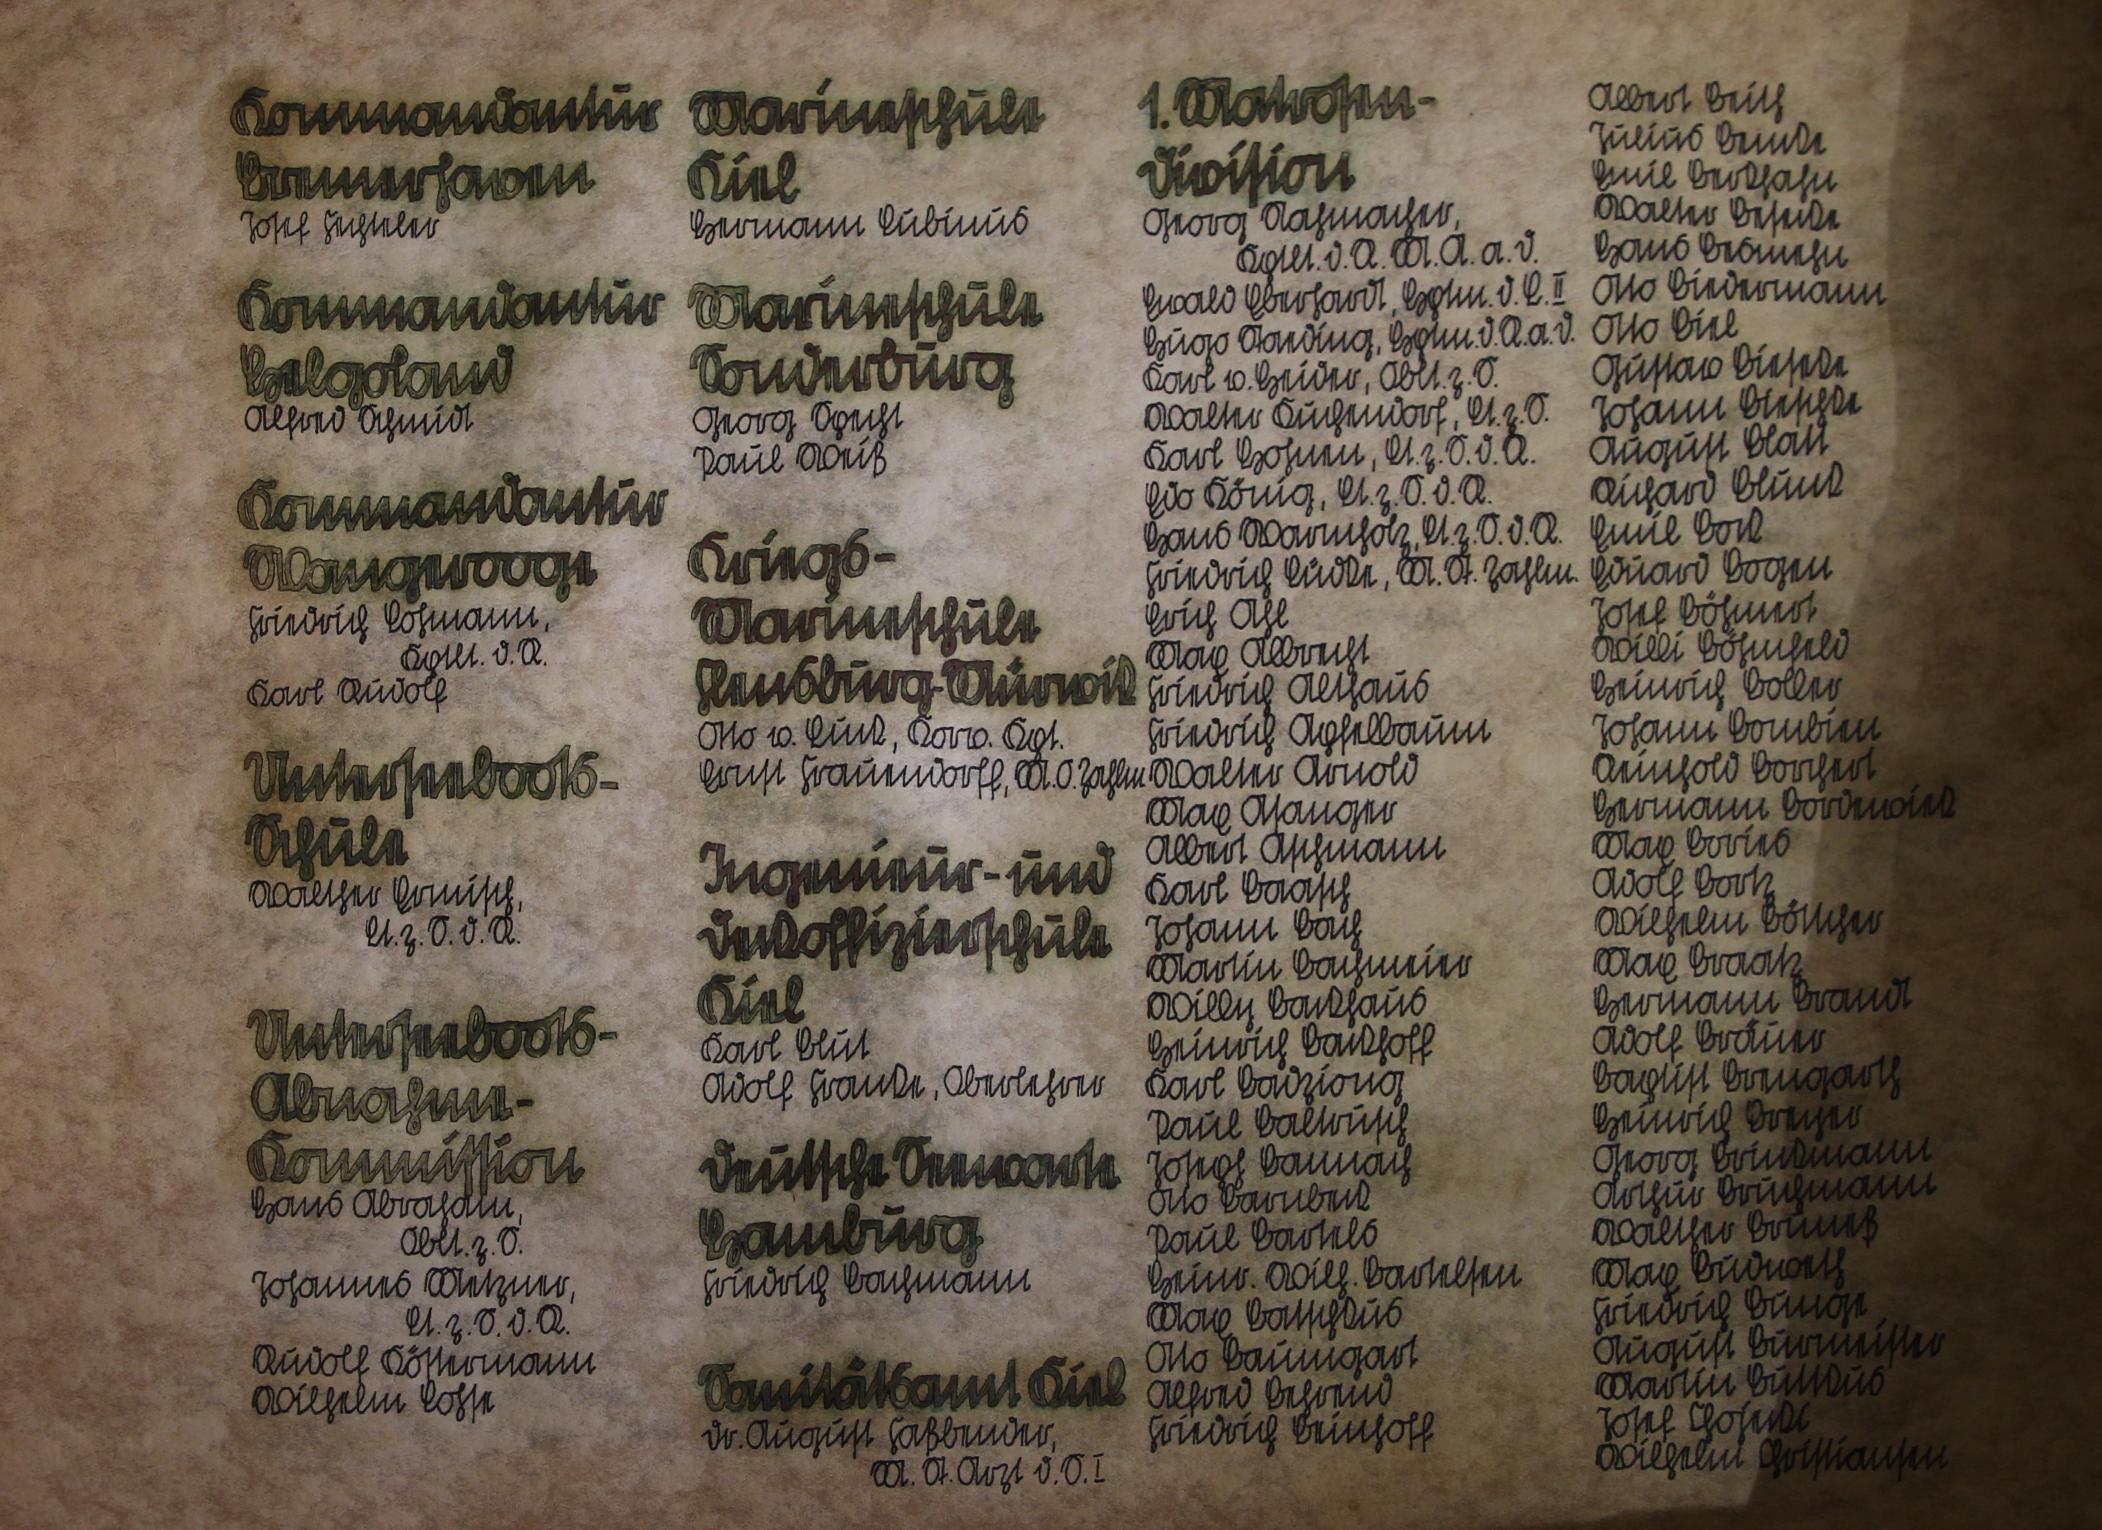 Kommandantur
Bremerhaven
Josef Fechteler
Kommandantur
Helgoland
Alfred Schmidt
Kommandantur
Wangerooge
Friedrich Lohmann,
Kptlt. d. R.
Karl Rudolf
Unterseeboots-
Schule
Walther Ermisch,
Lt. z. S. d. R.
Unterseeboots-
Abnahme-
Kommission
Hans Abraham,
Oblt. z. S.
Johannes Metzner,
Lt. z. S. d. R.
Rudolf Köstermann
Wilhelm Lohse
Marineschule
Kiel
Hermann Lubinus
Marineschule
Sonderburg
Georg Specht
Paul Weiß
Kriegs-
Marineschule
Flensburg-Mürwik
Otto v. Luck, Korv. Kpt.
Ernst Frauendorff, M.O.Zahlm.
Ingenieur- und
Deckoffizierschule
Kiel
Karl Blut
Adolf Francke, Oberlehrer
Deutsche Seewarte
Hamburg
Friedrich Bachmann
Sanitätsamt Kiel
Dr. August Faßbender,
M. St. Arzt d. S. I
1. Matrosen-
Division
Georg Rahmacher,
Kptlt. d. R. M. A. a. D.
Ewald Eberhardt, Hptm. d. L. II
Hugo Staeding, Hptm. d. R. a. D.
Karl v. Heider, Oblt. z. S.
Walter Kugendorf, Lt. z. S.
Karl Hohnen, Lt. z. S. d. R.
Udo König, Lt. z. S. d. R.
Hans Warnholz, Lt. z. S. d. R.
Friedrich Lüdke, M. St. Zahlm.
Erich Ahl
Max Albrecht
Friedrich Althaus
Friedrich Apfelbaum
Walter Arnold
Max Asanger
Albert Aschmann
Karl Baasch
Johann Bach
Martin Bachmeier
Willy Backhaus
Heinrich Backhoff
Karl Badziong
Paul Baltrusch
Joseph Bannach
Otto Barnbeck
Paul Bartels
Heinr. Wilh. Bartelsen
Max Batschkus
Otto Baumgart
Alfred Behrend
Friedrich Beinhoff
Albert Beith
Julius Bencke
Emil Berkhahn
Walter Beseke
Hans Besmehn
Otto Biedermann
Otto Biel
Gustav Bieseke
Johann Bieschke
August Blatt
Richard Blunck
Emil Bock
Eduard Bogen
Josef Böhmert
Willi Böhnfeld
Heinrich Boller
Johann Bombien
Reinhold Borchert
Hermann Bordewiek
Max Bories
Adolf Bork
Wilhelm Böttcher
Max Braatz
Hermann Brandt
Adolf Bräuer
Baptist Brengarth
Heinrich Breyer
Georg Brinkmann
Arthur Bruchmann
Walther Bruneß
Max Budweth
Friedrich Bunge
August Burmeister
Martin Buttkus
Josef
Wilhelm Christiansen